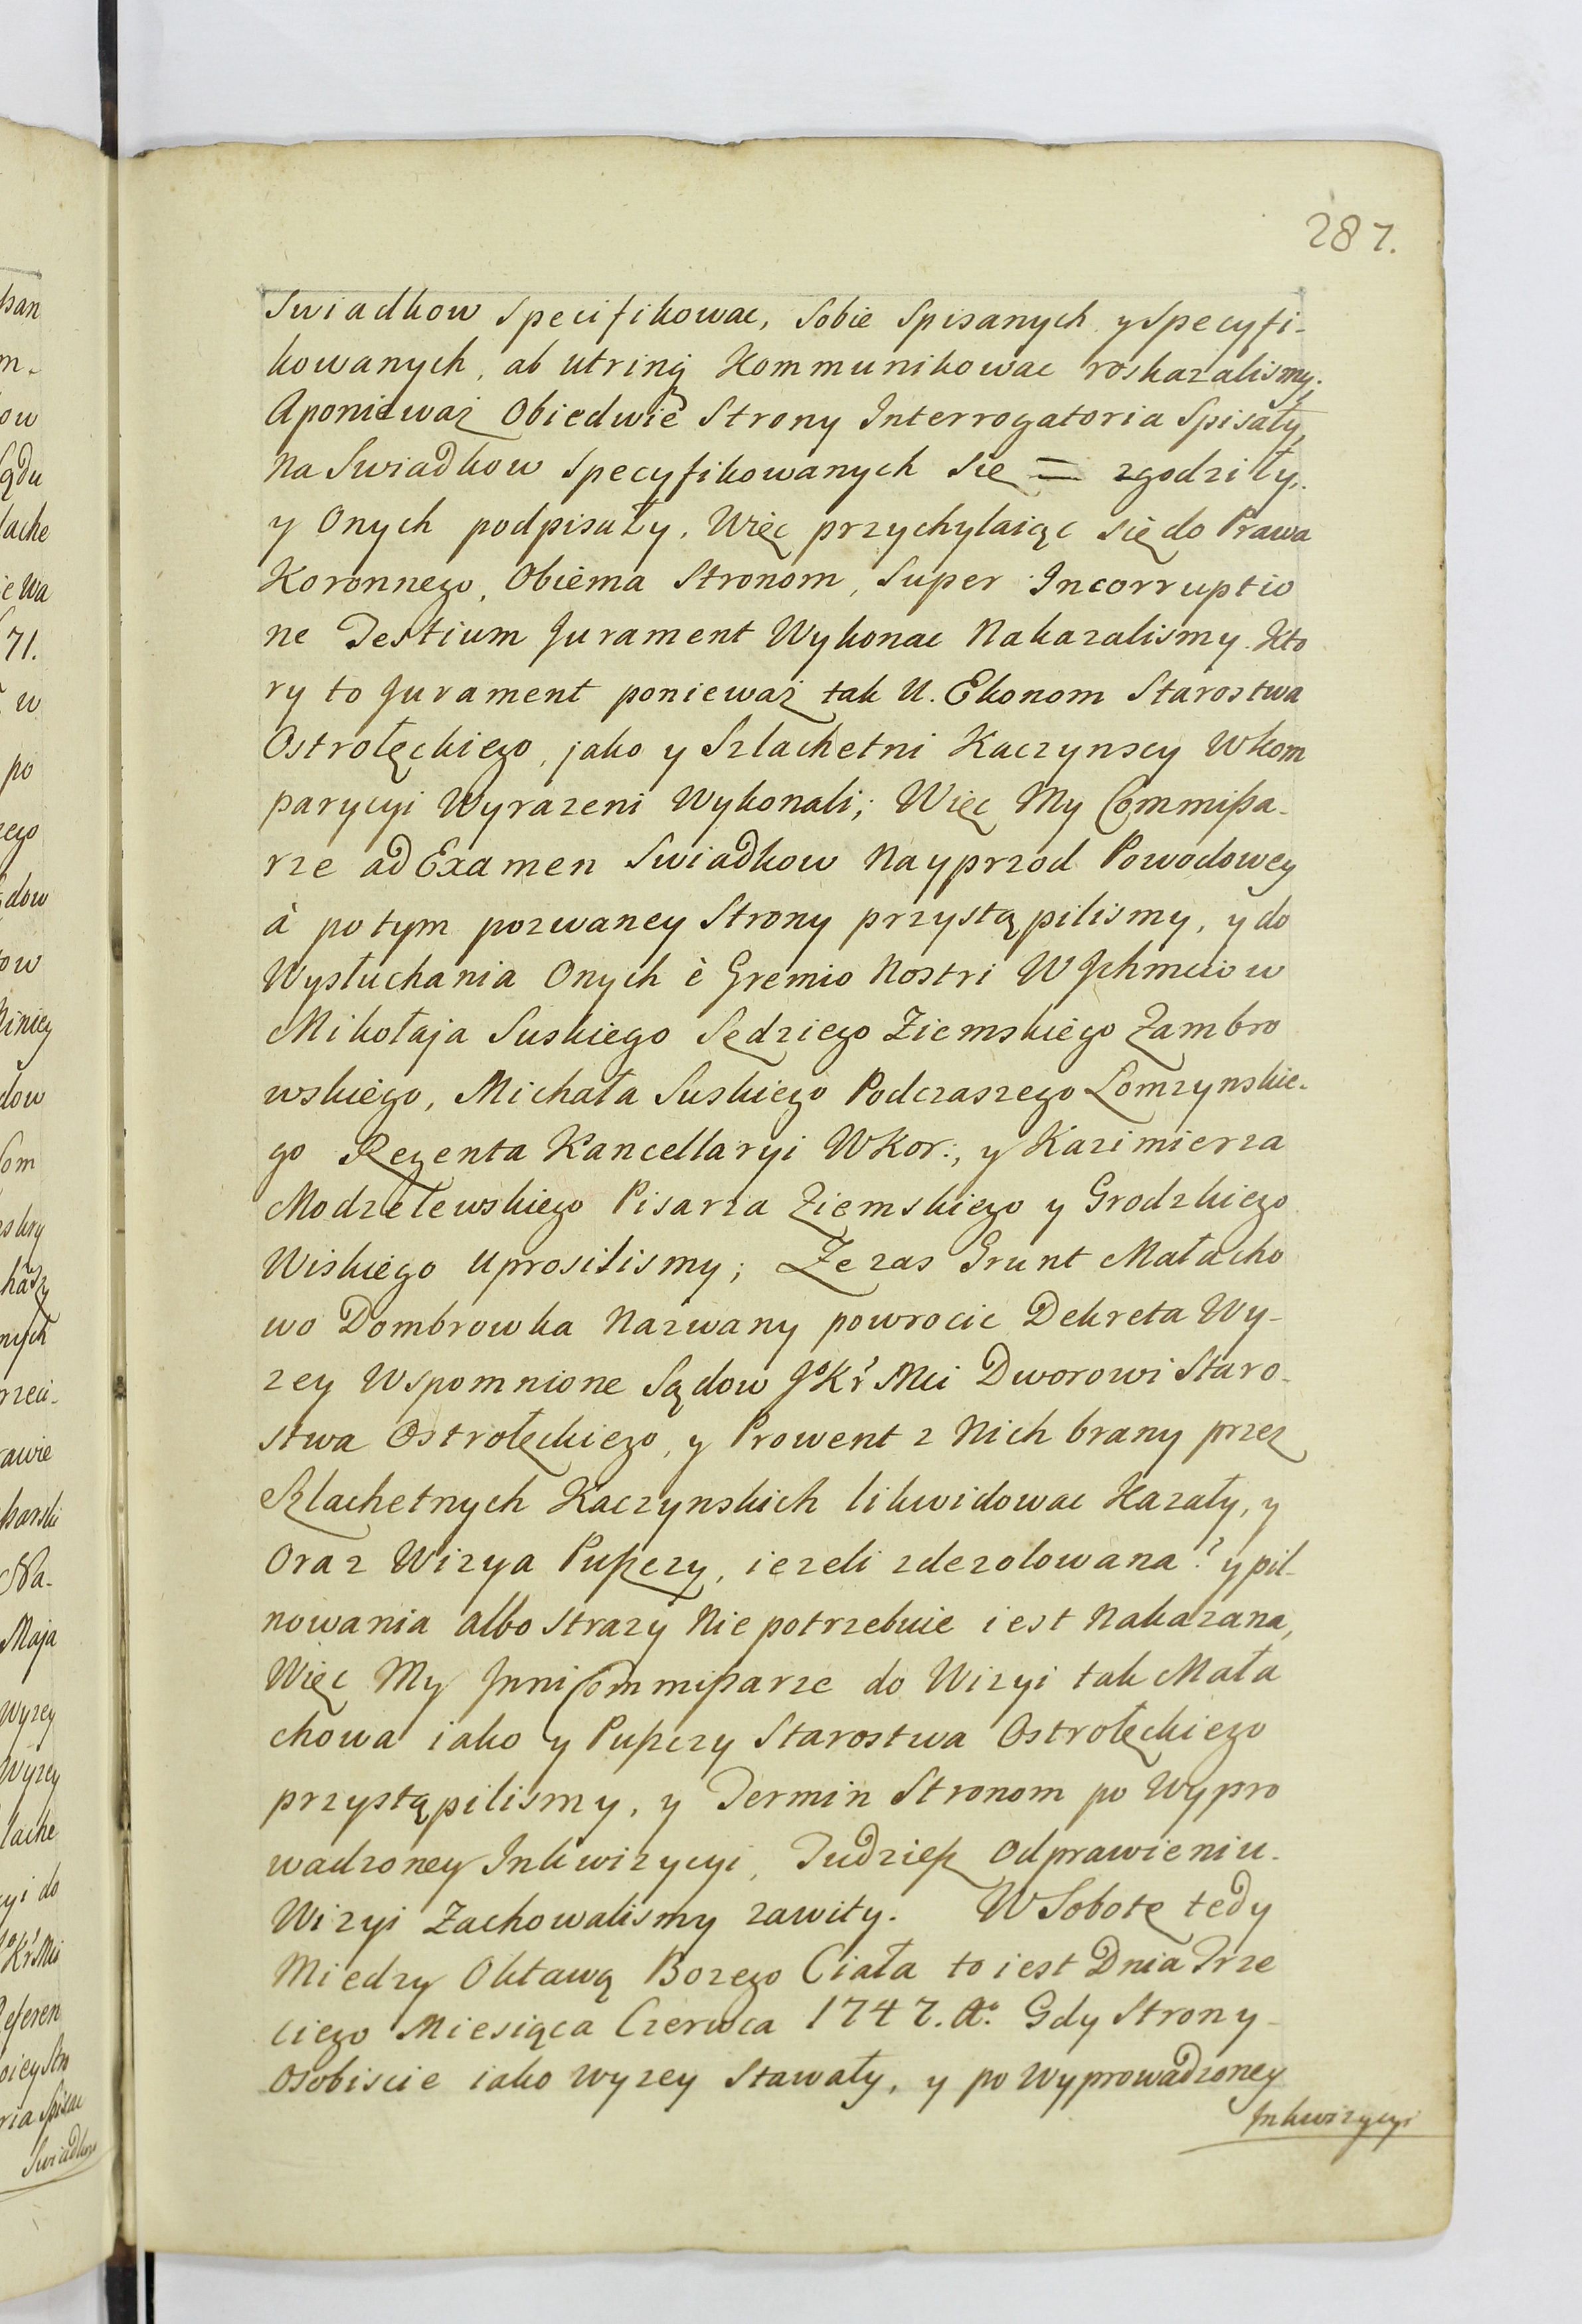 287.
Swiadkow specifikowac, sobie spisanych y specyfi-
kowanych, ab utrinq Kommunikowac roskazalismy.
Aponieważ Obiedwie Strony Interrogatoria Spisały,
na Swiadkow specyfikowanych się = zgodziły,
y Onych podpisały, Więc przychylaiąc się do Prawa
Koronnego, Obiema Stronom, Super Incorruptio
ne Testium Jurament Wykonac Nakazalismy. Kto
ry to Jurament ponieważ tak U. Ekonom Starostwa
Ostrołęckiego, jako y Szlachetni Kaczynscy Wkom
parycyi Wyrazeni Wykonali; Więc My Commißa-
rze ad Examen Swiadkow Nayprzod Powodowey
à potym pozwaney Strony przystąpilismy, y do
Wysłuchania Onych è Gremio Nostri W Jchmciow
Mikołaja Suskiego Sędziego Ziemskiego Zambro
wskiego, Michała Suskiego Podczaszego Łomzynskie-
go Regenta Kancellaryi WKor:, y Kazimierza
Modzelewskiego Pisarza Ziemskiego y Grodzkiego
Wiskiego uprosilismy; Ze zas Grunt Małacho
wo Dombrowka Nazwany powrocic Dekreta Wy-
zey Wspomnione Sądow JoKr Mci Dworowi Staro-
stwa Ostrołęckiego, y Prowent z Nich brany przez
Szlachetnych Kaczynskich likwidowac Kazały, y
Oraz Wizya Pußczy, iezeli zdezolowana? y pil-
nowania albo strazy Nie potrzebuie iest Nakazana,
Więc My Jnni Commißarze do Wizyi tak Mała
chowa iako y Pußczy Starostwa Ostrołęckiego
przystąpilismy, y Termin Stronom po Wypro
wadzoney Inkwizycyi, Tudzieß Odprawieniu
Wizyi Zachowalismy zawity. W Sobotę tedy
Miedzy Oktawą Bozego Ciała to iest Dnia Trze
ciego Miesiąca Czerwca 1747. Ao. Gdy Strony
Osobiscie iako wyzey Stawały, y po Wyprowadzoney
Jnkwizycyi